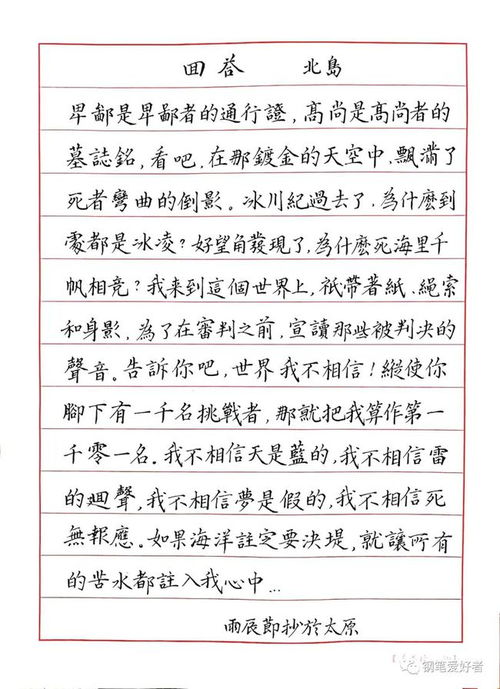 回荅 北島
卑鄙是卑鄙者的通行證，高尚是高尚者的
墓誌銘，看吧．在那鍍金的天空中，飄滿了
死者彎曲的倒影。冰川紀過去了．為什麼到
處都是冰凌？好望角發現了，為什麼死海里千
帆相競？我来到這個世界上，祇帶著紙、繩索
和身影，為了在審判之前，宣讀那些被判决的
聲音。告訴你吧，世界我不相信！縱使你
腳下有一千名挑戰者，那就把我算作第一
千零一名．我不相信天是藍的，我不相信雷
的迴聲，我不相信夢是假的，我不相信死
無報應。如果海洋註定要決堤，就讓所有
的苦水都註入我心中…
雨辰節抄於太原
钢笔爱好者